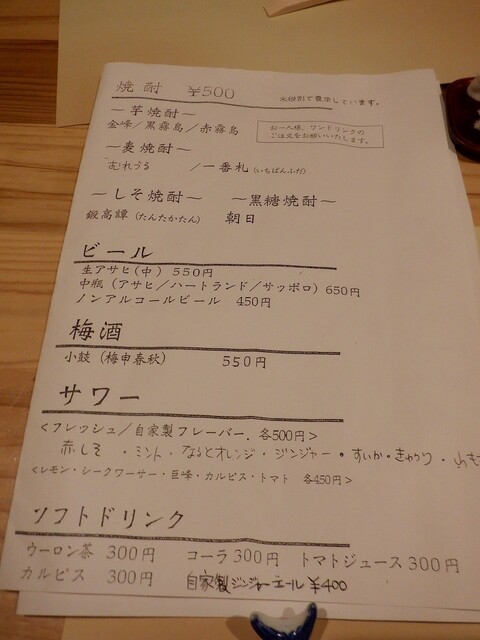 焼酎 ¥500
本体価格で表示しています。
～芋焼酎～
金峰／黒霧島／赤霧島
お一人様、ワンドリンクの
ご注文をお願いいたします。
～麦焼酎～
むれうる ／一番札(いちばんふだ)
～しそ焼酎～ ～黒糖焼酎～
鍛高譚(たんたかたん) 朝日
ビール
生アサヒ(中) 550円
中瓶(アサヒ／ハートランド／サッポロ)650円
ノンアルコールビール 450円
梅酒
小鼓(梅申春秋) 550円
サワー
<フレッシュ／自家製フレーバー．各500円>
赤しそ ・ミント・なるとオレンジ・ジンジャー・すいか・きゅうり・
<レモン・シークワーサー・巨峰・カルピス・トマト 各450円>
ソフトドリンク
ウーロン茶 300円 コーラ300円 トマトジュース300円
カルピス 300円 自家製ジンジャーエール ¥400